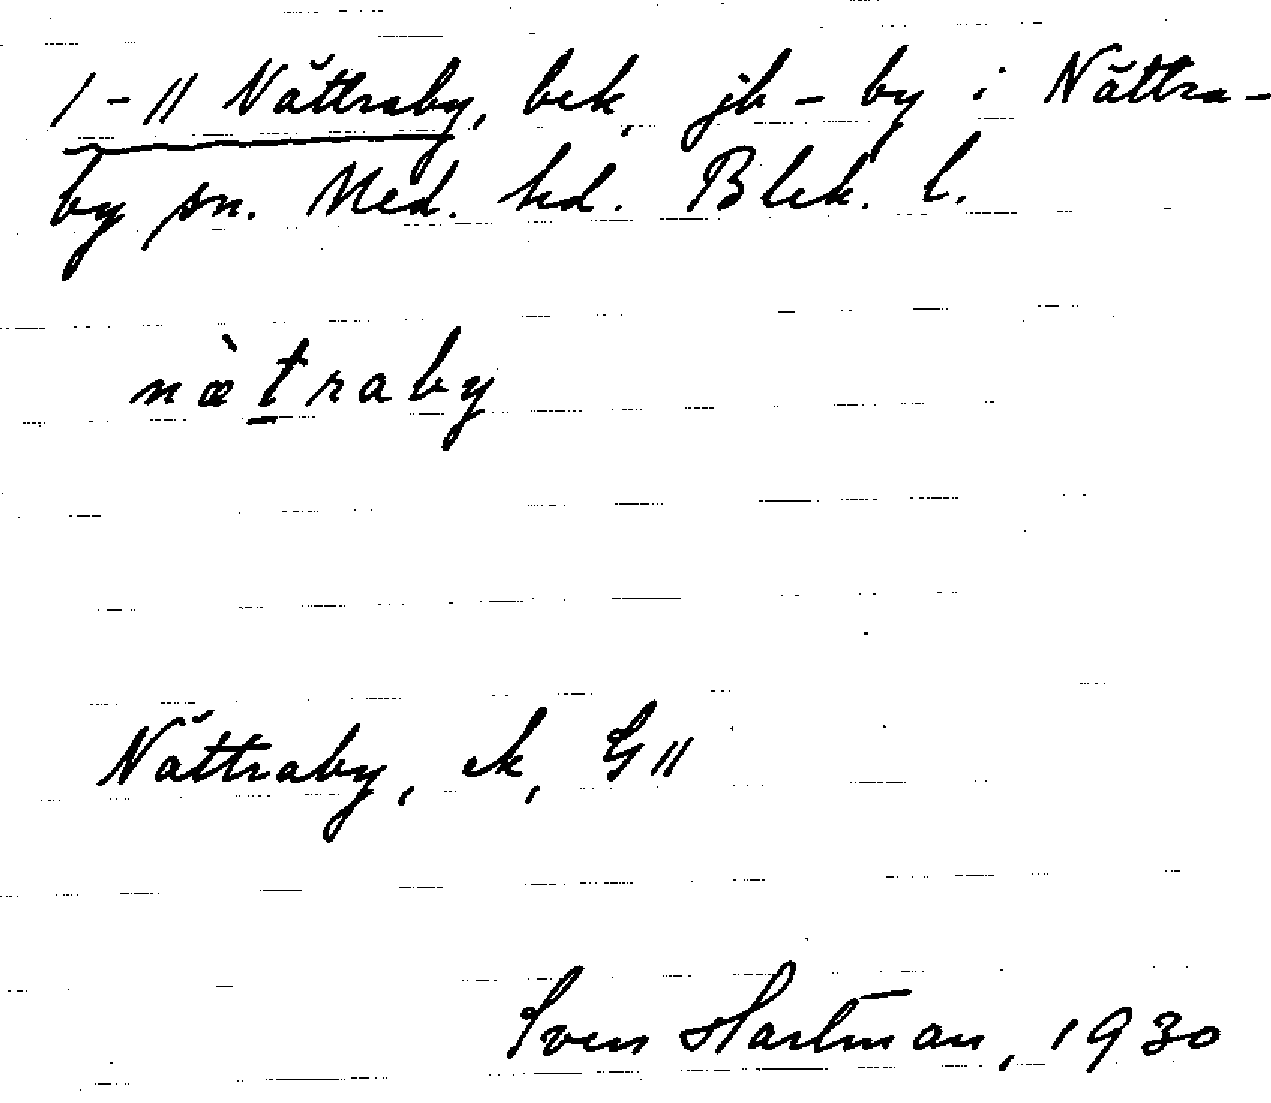 1-11 Nättraby, bek, jb-by i Nättra-
by sn. Med. hd. Blek. l.
næ̀t̲raby
Nättraby, ek, G 11
Sven Hartman, 1930